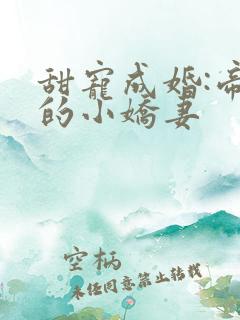 甜寵成婚:帝
的小嬌妻
空柄
未经同意禁止转载